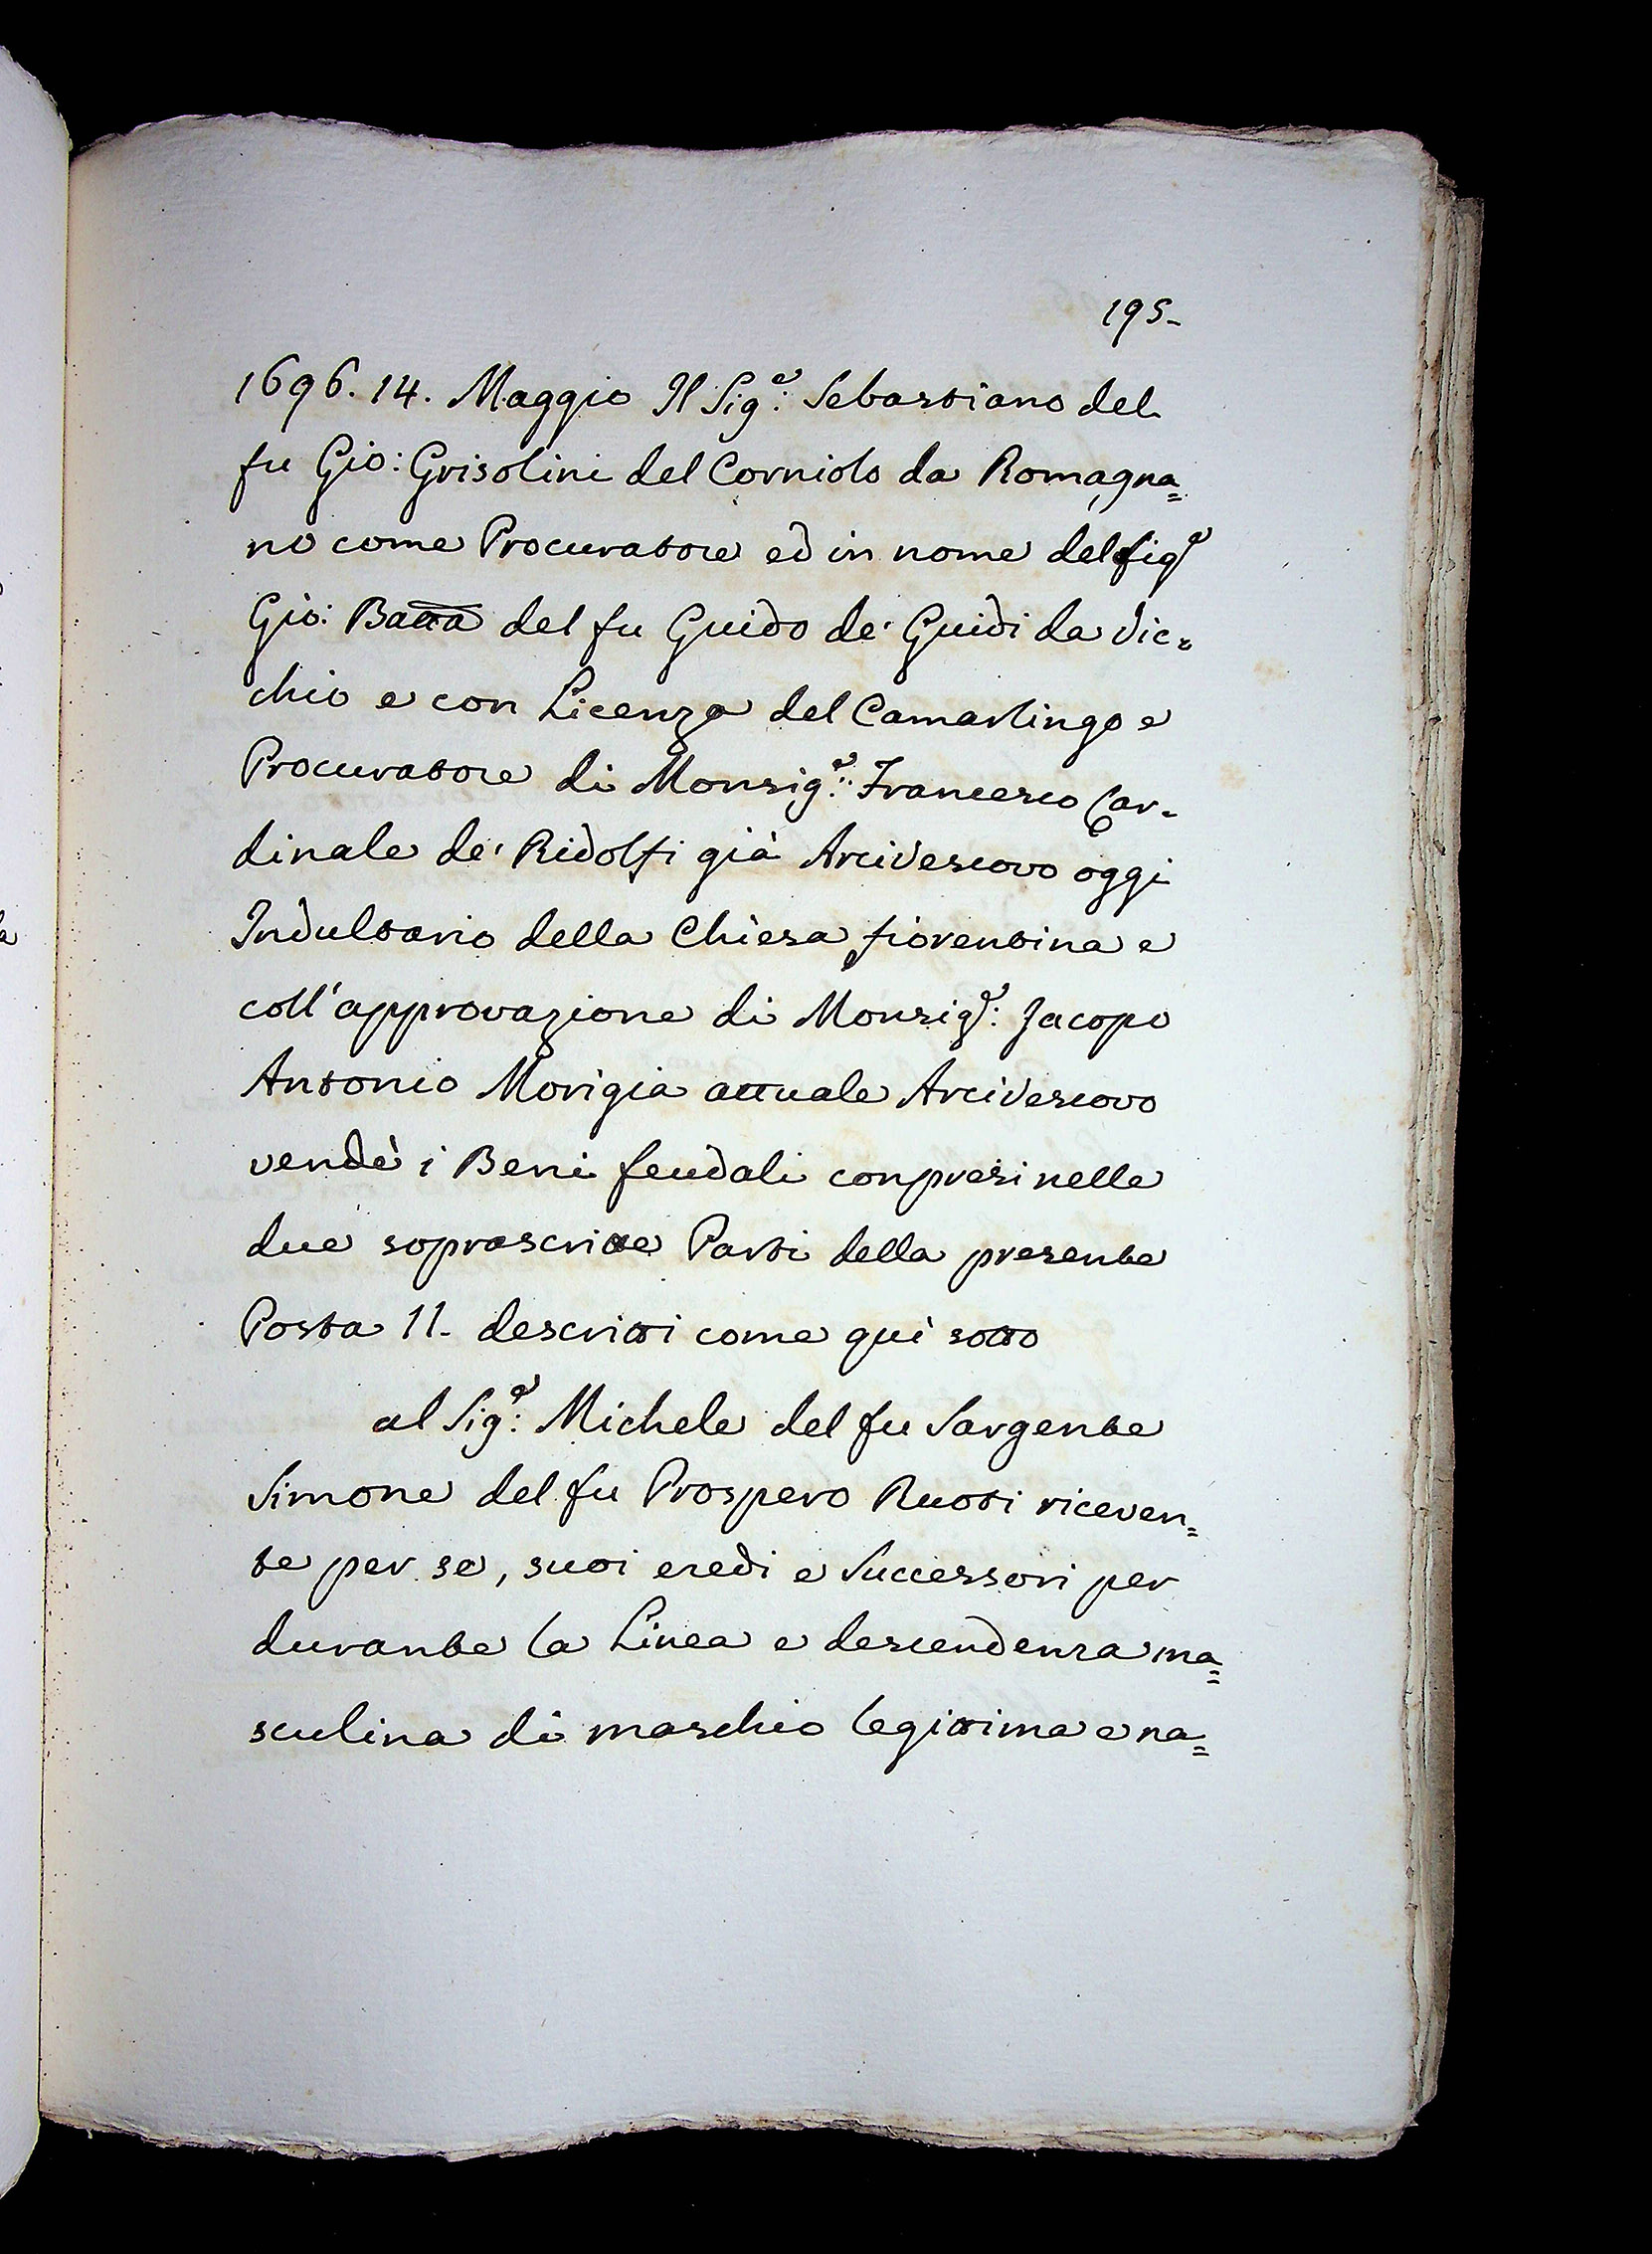 195-
1696. 14. Maggio Il Sig.e: Sebastiano del
fu Gio: Grisolini del Corniolo da Romagna=
no come Procuratore ed in nome del Sig.e
Gio: Batta del fu Guido de' Guidi da Vic=
chio e con Licenza del Camarlingo e
Procuratore di Monsig.e: Francesco Car=
dinale de' Ridolfi già Arcivescovo oggi
Indultario della Chiesa fiorentina e
coll'approvazione di Monsig.e: Jacopo
Antonio Morigia attuale Arcivescovo
vendè i Beni feudali conpresi nelle
due soprascritte Parti della presente
Posta 11. descritti come quì sotto
al Sig.e: Michele del fu Sargente
Simone del fu Prospero Ruoti riceven=
te per se, suoi eredi e Successori per
durante la Linea e descendenza ma=
sculina di maschio legittima e na=